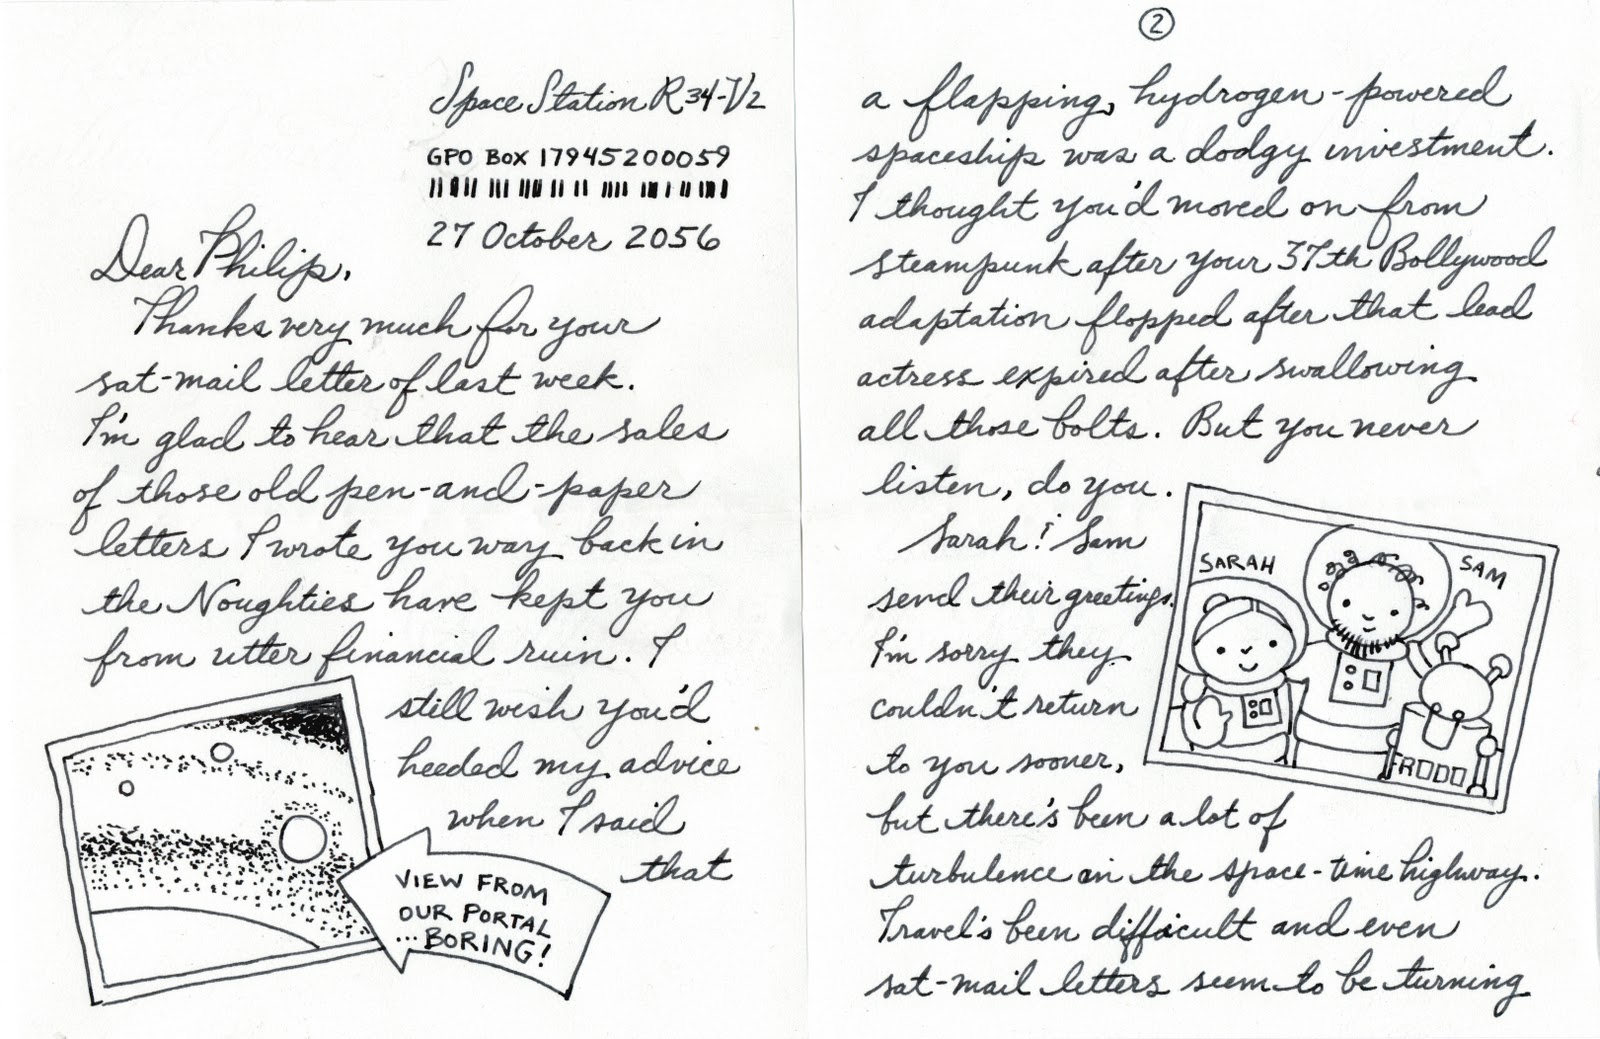 Space Station R34-V2
GPO BOX 17945200059
27 October 2056
Dear Philip,
Thanks very much for your
sat-mail letter of last week.
I'm glad to hear that the sales
of those old pen-and-paper
letters I wrote you way back in
the Noughties have kept you
from utter financial ruin. I
still wish you'd
heeded my advice
when I said
that
VIEW FROM
OUR PORTAL
...BORING!
2
a flapping, hydrogen-powered
spaceship was a dodgy investment.
I thought you'd moved on from
steampunk after your 37th Bollywood
adaptation flopped after that lead
actress expired after swallowing
all those bolts. But you never
listen, do you.
Sarah & Sam
send their greetings.
I'm sorry they
couldn't return
to you sooner,
but there's been a lot of
turbulence on the space-time highway.
Travel's been difficult and even
sat-mail letters seem to be turning
SARAH
SAM
FRODO